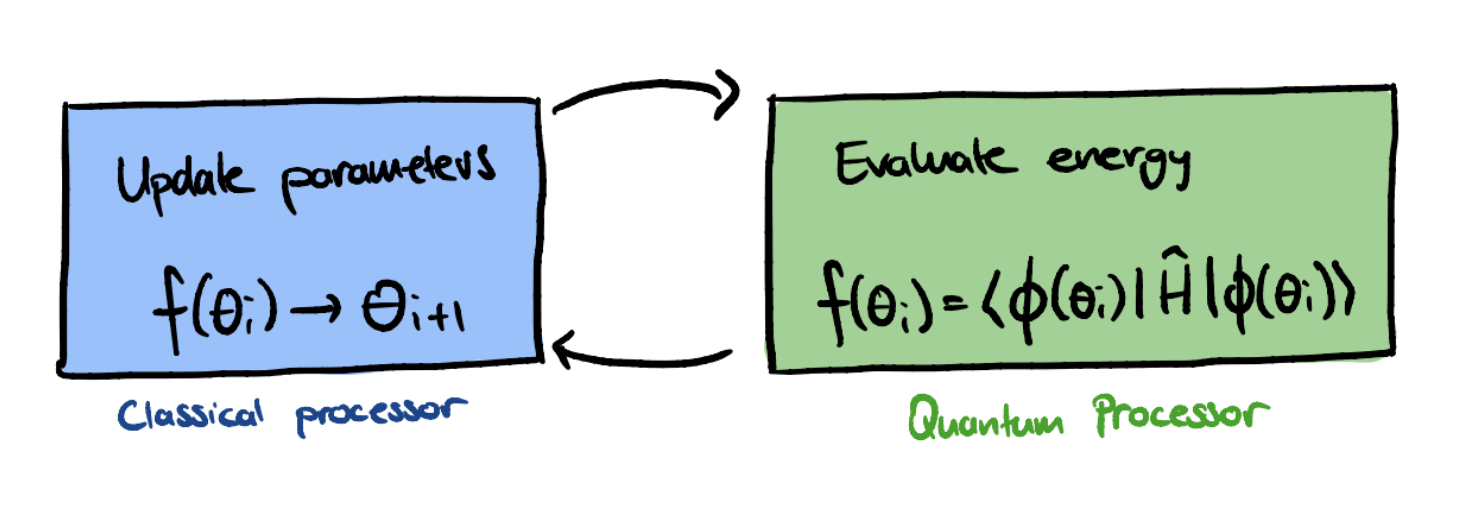 Update parameters
f(θᵢ) → θᵢ₊₁
Classical processor
Evaluate energy
f(θᵢ) = ⟨ϕ(θᵢ)|Ĥ|ϕ(θᵢ)⟩
Quantum Processor